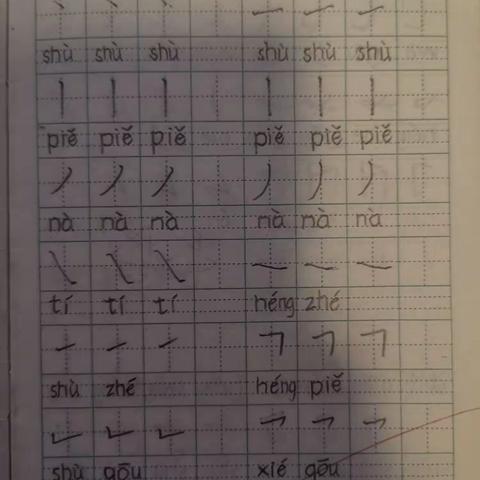 shù shù shù shù shù shù
piě piě piě piě piě piě
nà nà nà nà nà nà
tí tí tí héng zhé
shù zhé héng piě
shù gōu xié gōu